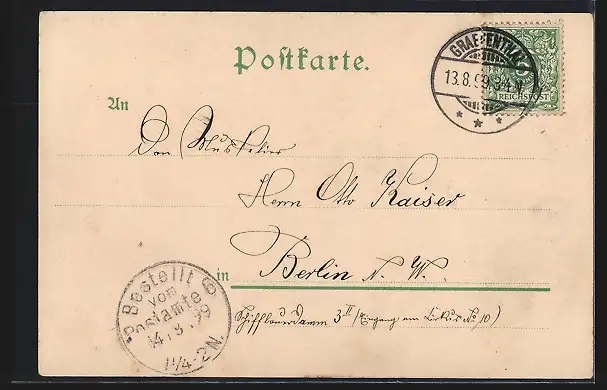 Postkarte.
GRAEFENTHAL
13.8.99. 3-4 N.
REICHSPOST
An
Den Musketier
Herrn Otto Kaiser
in Berlin N. W.
Schiffbauerdamm 3 II (Eingang am Zirkus No 10)
Bestellt
vom
Postamte 6
14.8.99
11/4-2N.